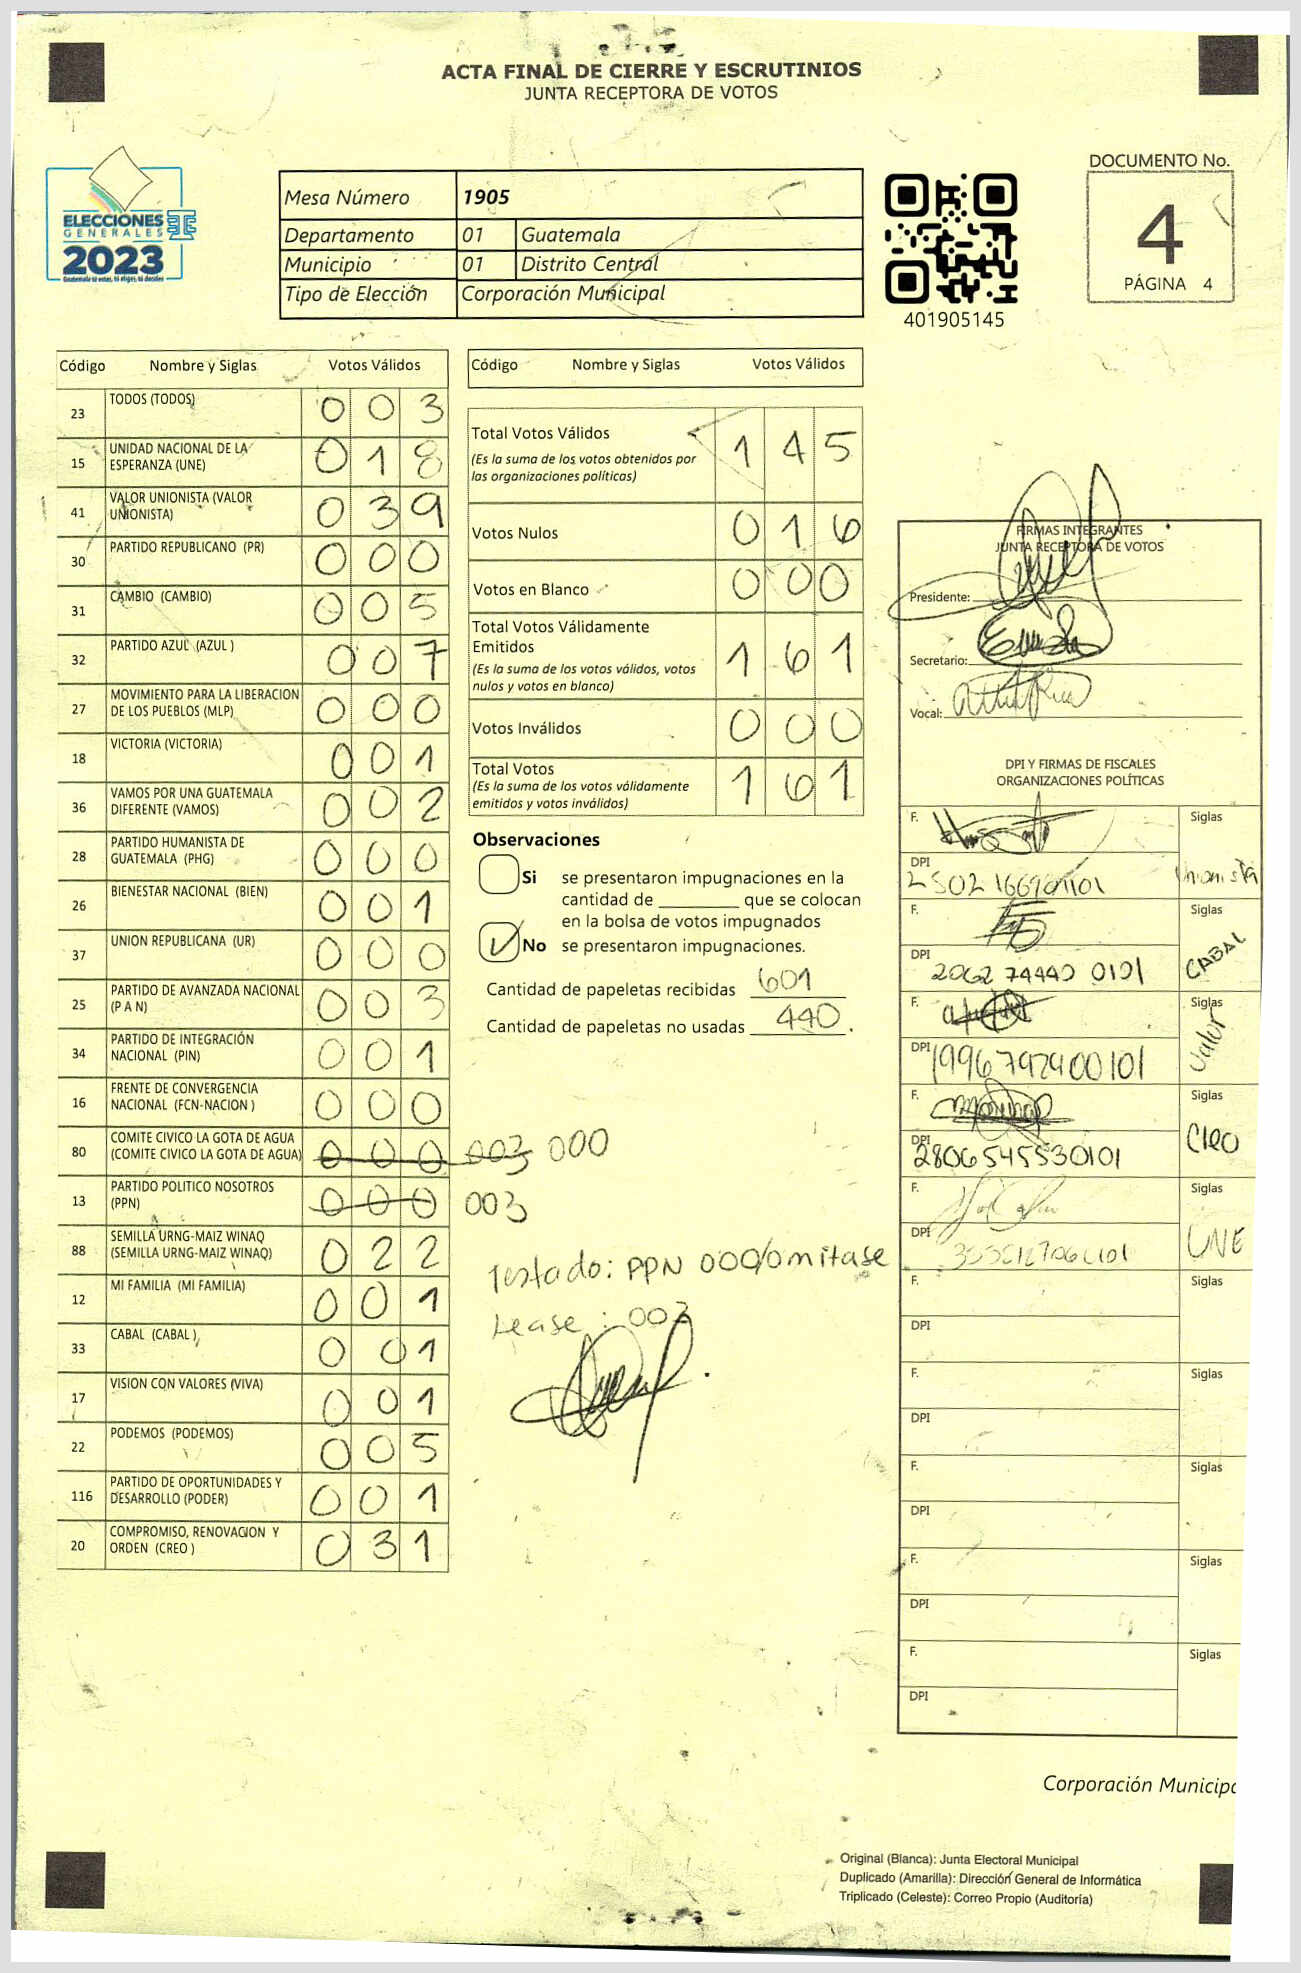 ACTA FINAL DE CIERRE Y ESCRUTINIOS
JUNTA RECEPTORA DE VOTOS
ELECCIONES
GENERALES
2023
Guatemala tú votas, tú eliges, tú decides
Mesa Número 1905
Departamento 01 Guatemala
Municipio 01 Distrito Central
Tipo de Elección Corporación Municipal
401905145
DOCUMENTO No.
4
PÁGINA 4
Código Nombre y Siglas Votos Válidos
23 TODOS (TODOS) 0 0 3
15 UNIDAD NACIONAL DE LA ESPERANZA (UNE) 0 1 8
41 VALOR UNIONISTA (VALOR UNIONISTA) 0 3 9
30 PARTIDO REPUBLICANO (PR) 0 0 0
31 CAMBIO (CAMBIO) 0 0 5
32 PARTIDO AZUL (AZUL ) 0 0 7
27 MOVIMIENTO PARA LA LIBERACION DE LOS PUEBLOS (MLP) 0 0 0
18 VICTORIA (VICTORIA) 0 0 1
36 VAMOS POR UNA GUATEMALA DIFERENTE (VAMOS) 0 0 2
28 PARTIDO HUMANISTA DE GUATEMALA (PHG) 0 0 0
26 BIENESTAR NACIONAL (BIEN) 0 0 1
37 UNION REPUBLICANA (UR) 0 0 0
25 PARTIDO DE AVANZADA NACIONAL (P A N) 0 0 3
34 PARTIDO DE INTEGRACIÓN NACIONAL (PIN) 0 0 1
16 FRENTE DE CONVERGENCIA NACIONAL (FCN-NACION ) 0 0 0
80 COMITE CIVICO LA GOTA DE AGUA (COMITE CIVICO LA GOTA DE AGUA) 0 0 0 003 000
13 PARTIDO POLITICO NOSOTROS (PPN) 0 0 0 003
88 SEMILLA URNG-MAIZ WINAQ (SEMILLA URNG-MAIZ WINAQ) 0 2 2
12 MI FAMILIA (MI FAMILIA) 0 0 1
33 CABAL (CABAL ) 0 0 1
17 VISION CON VALORES (VIVA) 0 0 1
22 PODEMOS (PODEMOS) 0 0 5
116 PARTIDO DE OPORTUNIDADES Y DESARROLLO (PODER) 0 0 1
20 COMPROMISO, RENOVACION Y ORDEN (CREO ) 0 3 1
Código Nombre y Siglas Votos Válidos
Total Votos Válidos 1 4 5
(Es la suma de los votos obtenidos por
las organizaciones políticas)
Votos Nulos 0 1 6
Votos en Blanco 0 0 0
Total Votos Válidamente
Emitidos 1 6 1
(Es la suma de los votos válidos, votos
nulos y votos en blanco)
Votos Inválidos 0 0 0
Total Votos 1 6 1
(Es la suma de los votos válidamente
emitidos y votos inválidos)
Observaciones
Si se presentaron impugnaciones en la
cantidad de ________ que se colocan
en la bolsa de votos impugnados
No se presentaron impugnaciones.
Cantidad de papeletas recibidas 601
Cantidad de papeletas no usadas 440.
Testado: PPN 000/omitase
Lease : 003
FIRMAS INTEGRANTES
JUNTA RECEPTORA DE VOTOS
Presidente:
Secretario:
Vocal:
DPI Y FIRMAS DE FISCALES
ORGANIZACIONES POLÍTICAS
F. Siglas
DPI Unionista
F. Siglas
DPI 2062 74440 0101 CABAL
F. Siglas
DPI 1996792400101 Valor
F. Siglas
DPI 2806545530101 CREO
F. Siglas
DPI UNE
F. Siglas
DPI
F. Siglas
DPI
F. Siglas
DPI
F. Siglas
DPI
F. Siglas
DPI
Corporación Municipa
Original (Blanca): Junta Electoral Municipal
Duplicado (Amarilla): Dirección General de Informática
Triplicado (Celeste): Correo Propio (Auditoría)